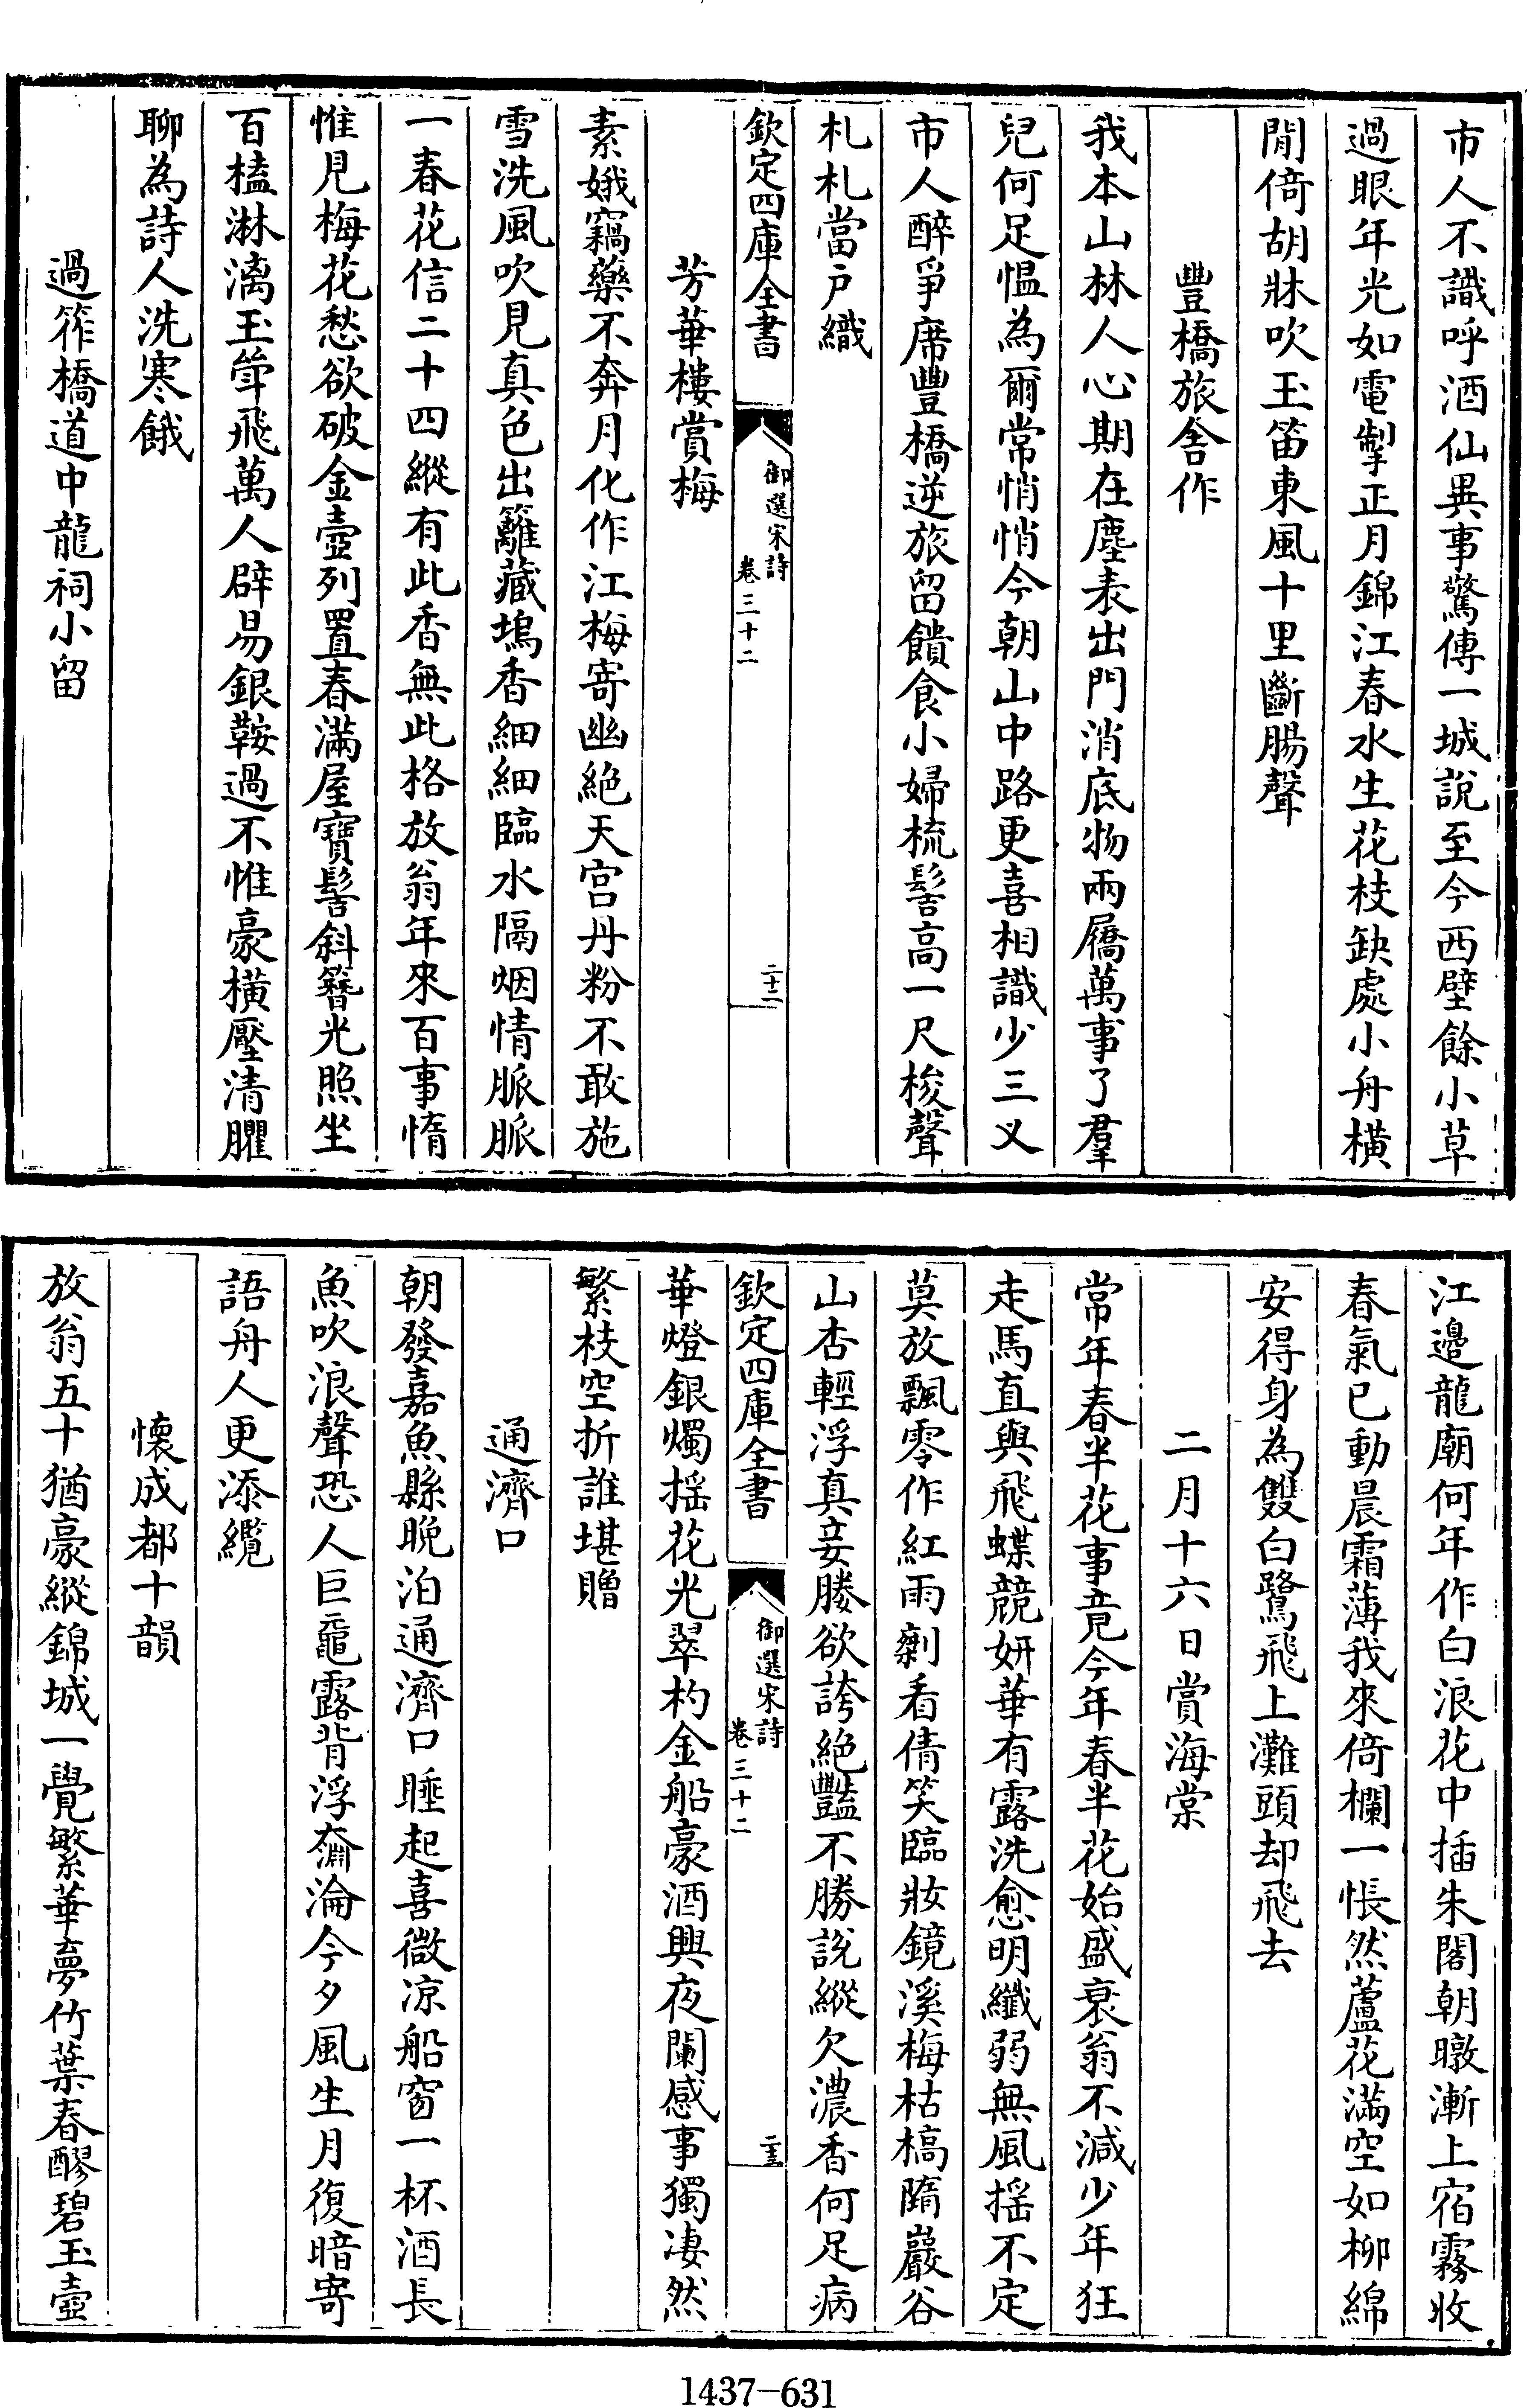 市人不識呼酒仙異事驚傳一城說至今西壁餘小草
過眼年光如電掣正月錦江春水生花枝缺處小舟橫
閒倚胡牀吹玉笛東風十里斷腸聲
豐橋旅舍作
我本山林人心期在塵表出門消底物兩屩萬事了羣
兒何足愠為爾常悄悄今朝山中路更喜相識少三义
市人醉爭席豐橋逆旅留饋食小婦梳髻高一尺梭聲
札札當戶織
欽定四庫全書
御選宋詩
卷三十二
二十二
芳華樓賞梅
素娥竊藥不奔月化作江梅寄幽絶天宫丹粉不敢施
雪洗風吹見真色出籬藏塢香細細臨水隔烟情脈脈
一春花信二十四縱有此香無此格放翁年來百事惰
惟見梅花愁欲破金壺列置春滿屋寶髻斜簪光照坐
百榼淋漓玉斝飛萬人辟易銀鞍過不惟豪橫壓清臞
聊為詩人洗寒餓
過筰橋道中龍祠小留
江邊龍廟何年作白浪花中插朱閣朝暾漸上宿霧收
春氣已動晨霜薄我來倚欄一悵然蘆花滿空如柳綿
安得身為雙白鷺飛上灘頭却飛去
二月十六日賞海棠
常年春半花事竟今年春半花始盛衰翁不減少年狂
走馬直與飛蝶競妍華有露洗愈明纖弱無風揺不定
莫放飄零作紅雨剰看倩笑臨妝鏡溪梅枯槁隋巖谷
山杏輕浮真妾媵欲誇絶豔不勝說縱欠濃香何足病
欽定四庫全書
御選宋詩
卷三十二
二十三
華燈銀燭揺花光翠杓金船豪酒興夜闌感事獨凄然
繁枝空折誰堪贈
通濟口
朝發嘉魚縣晚泊通濟口睡起喜微凉船窗一杯酒長
魚吹浪聲恐人巨黿露背浮奫淪今夕風生月復暗寄
語舟人更添纜
懷成都十韻
放翁五十猶豪縱錦城一覺繁華夢竹葉春醪碧玉壺
1437-631